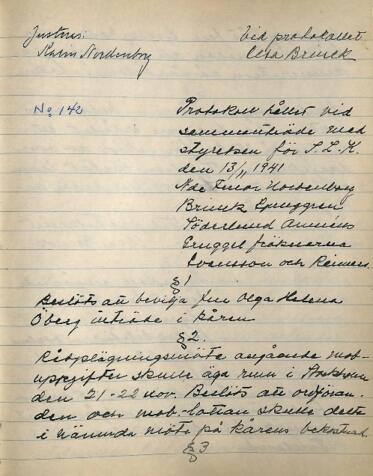 Justeras: Vid protokollet
Karin Nordenborg Elsa Brinck
No 142
Protokoll hållet vid
sammanträde med
styrelsen för S.L.K.
den 13/11 1941
Nde Fruar Nordenborg
Brinck Ljunggren
Söderlund
fröknarna
Svensson och Reimers.
§1
Beslöts att bevilja fru Olga Helena
Öberg inträde i kåren
§2.
Rådplägningsmöte angående mob-
uppgifter skulle äga rum i Stockholm
den 21-22 nov. Beslöts att ordföran-
den och mob.-lottan skulle deltaga
i nämnda möte på kårens bekostnad.
§3